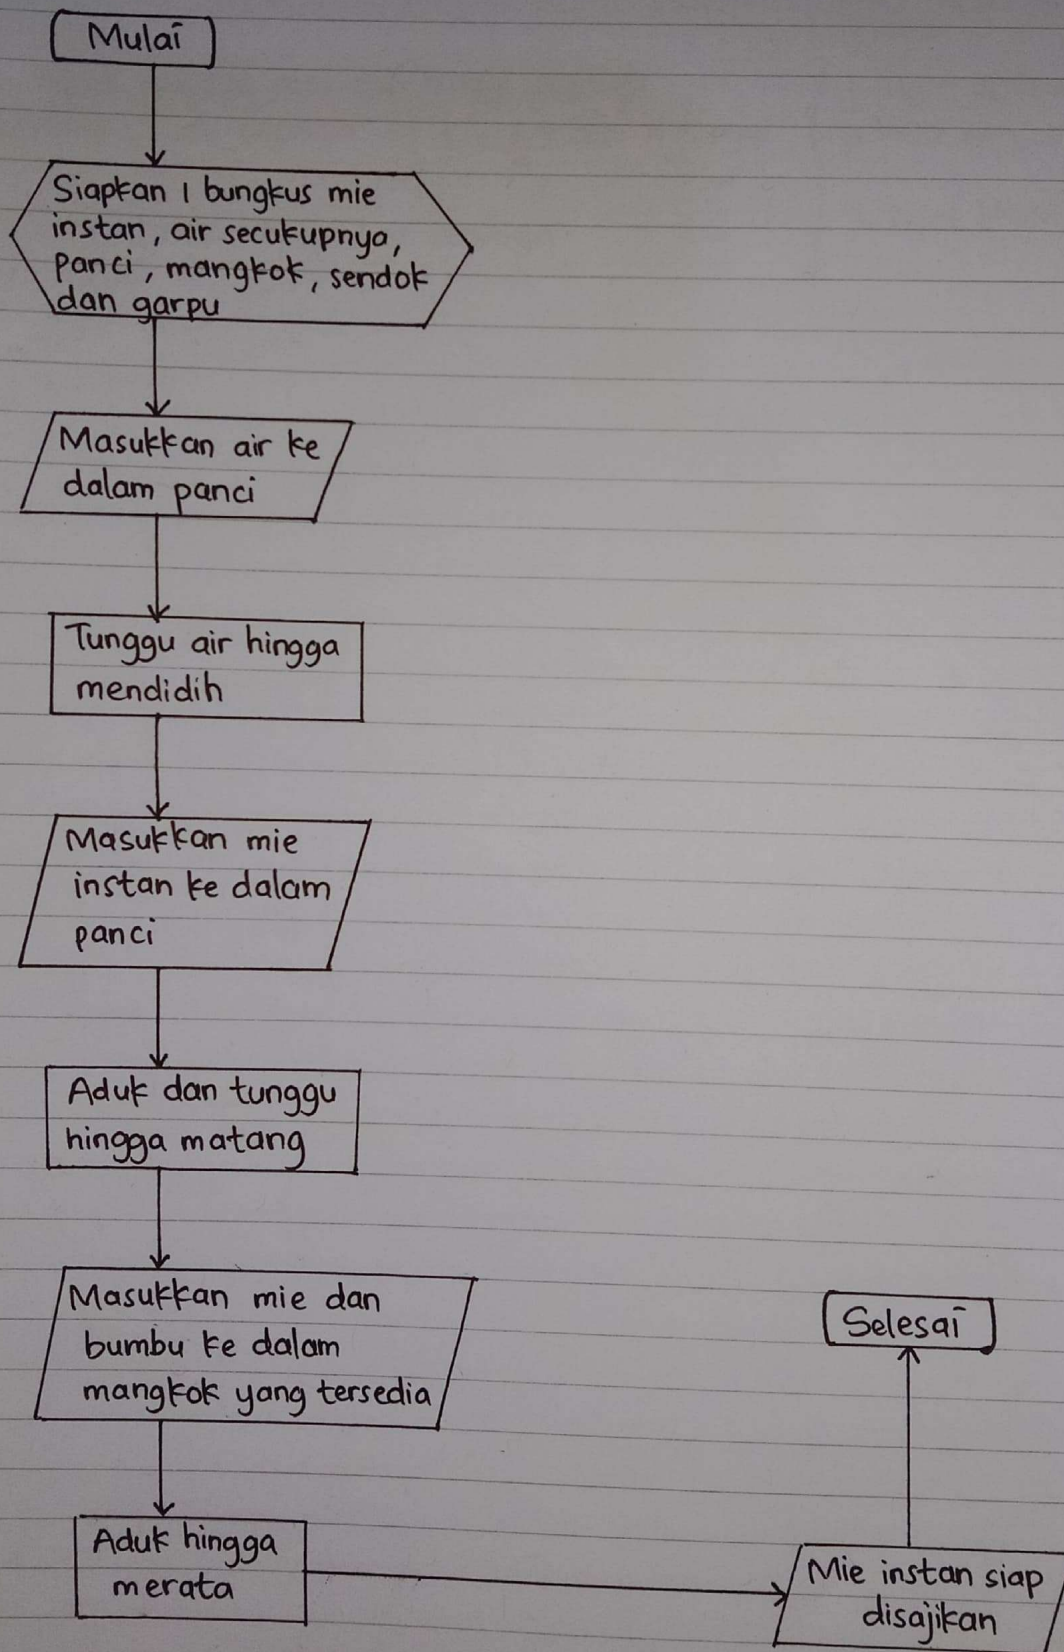 Mulai
Siapkan 1 bungkus mie
instan, air secukupnya,
panci, mangkok, sendok
dan garpu
Masukkan air ke
dalam panci
Tunggu air hingga
mendidih
Masukkan mie
instan ke dalam
panci
Aduk dan tunggu
hingga matang
Masukkan mie dan
bumbu ke dalam
mangkok yang tersedia
Aduk hingga
merata
Mie instan siap
disajikan
Selesai